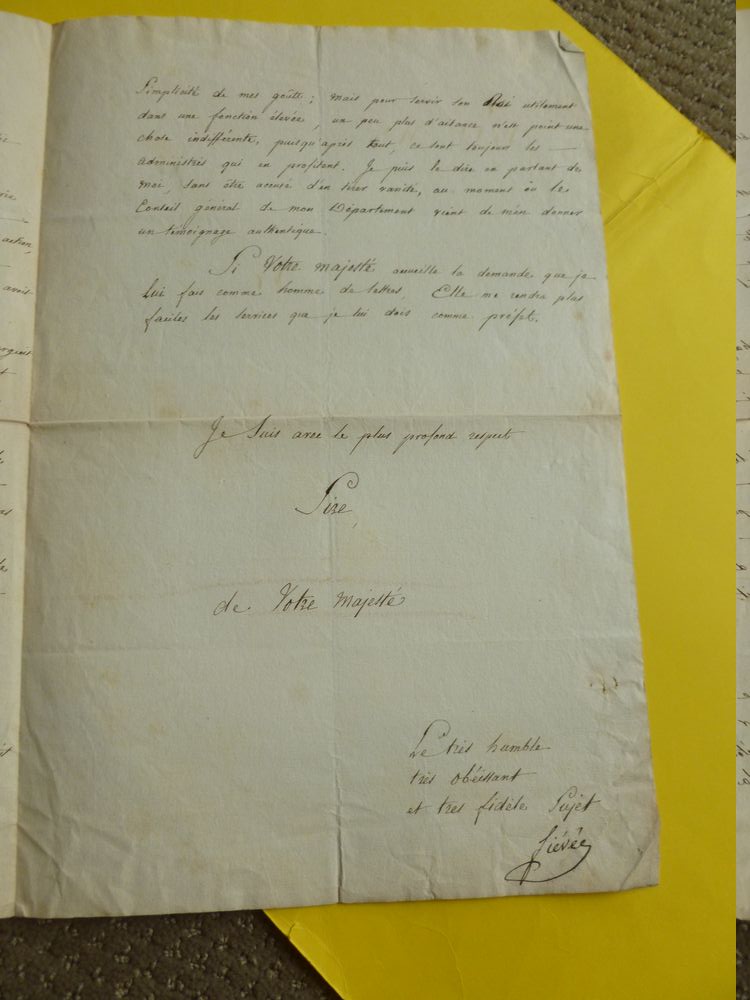 Simplicité de mes goûts ; mais pour servir son Roi utilement
dans une fonction élevée, un peu plus d'aisance n'est point une
chose indifférente, puisqu'après tout, ce sont toujours les
administrés qui en profitent. Je puis le dire en parlant de
moi, sans être accusé d'en tirer vanité, au moment où le
Conseil général de mon Département vient de m'en donner
un témoignage authentique.
Si Votre Majesté accueille la demande que je
lui fais comme homme de lettres, Elle me rendra plus
faciles les services que je lui dois comme préfet.
Je suis avec le plus profond respect
Sire,
de Votre Majesté
Le très humble
très obéissant
et très fidèle Sujet
fiévée